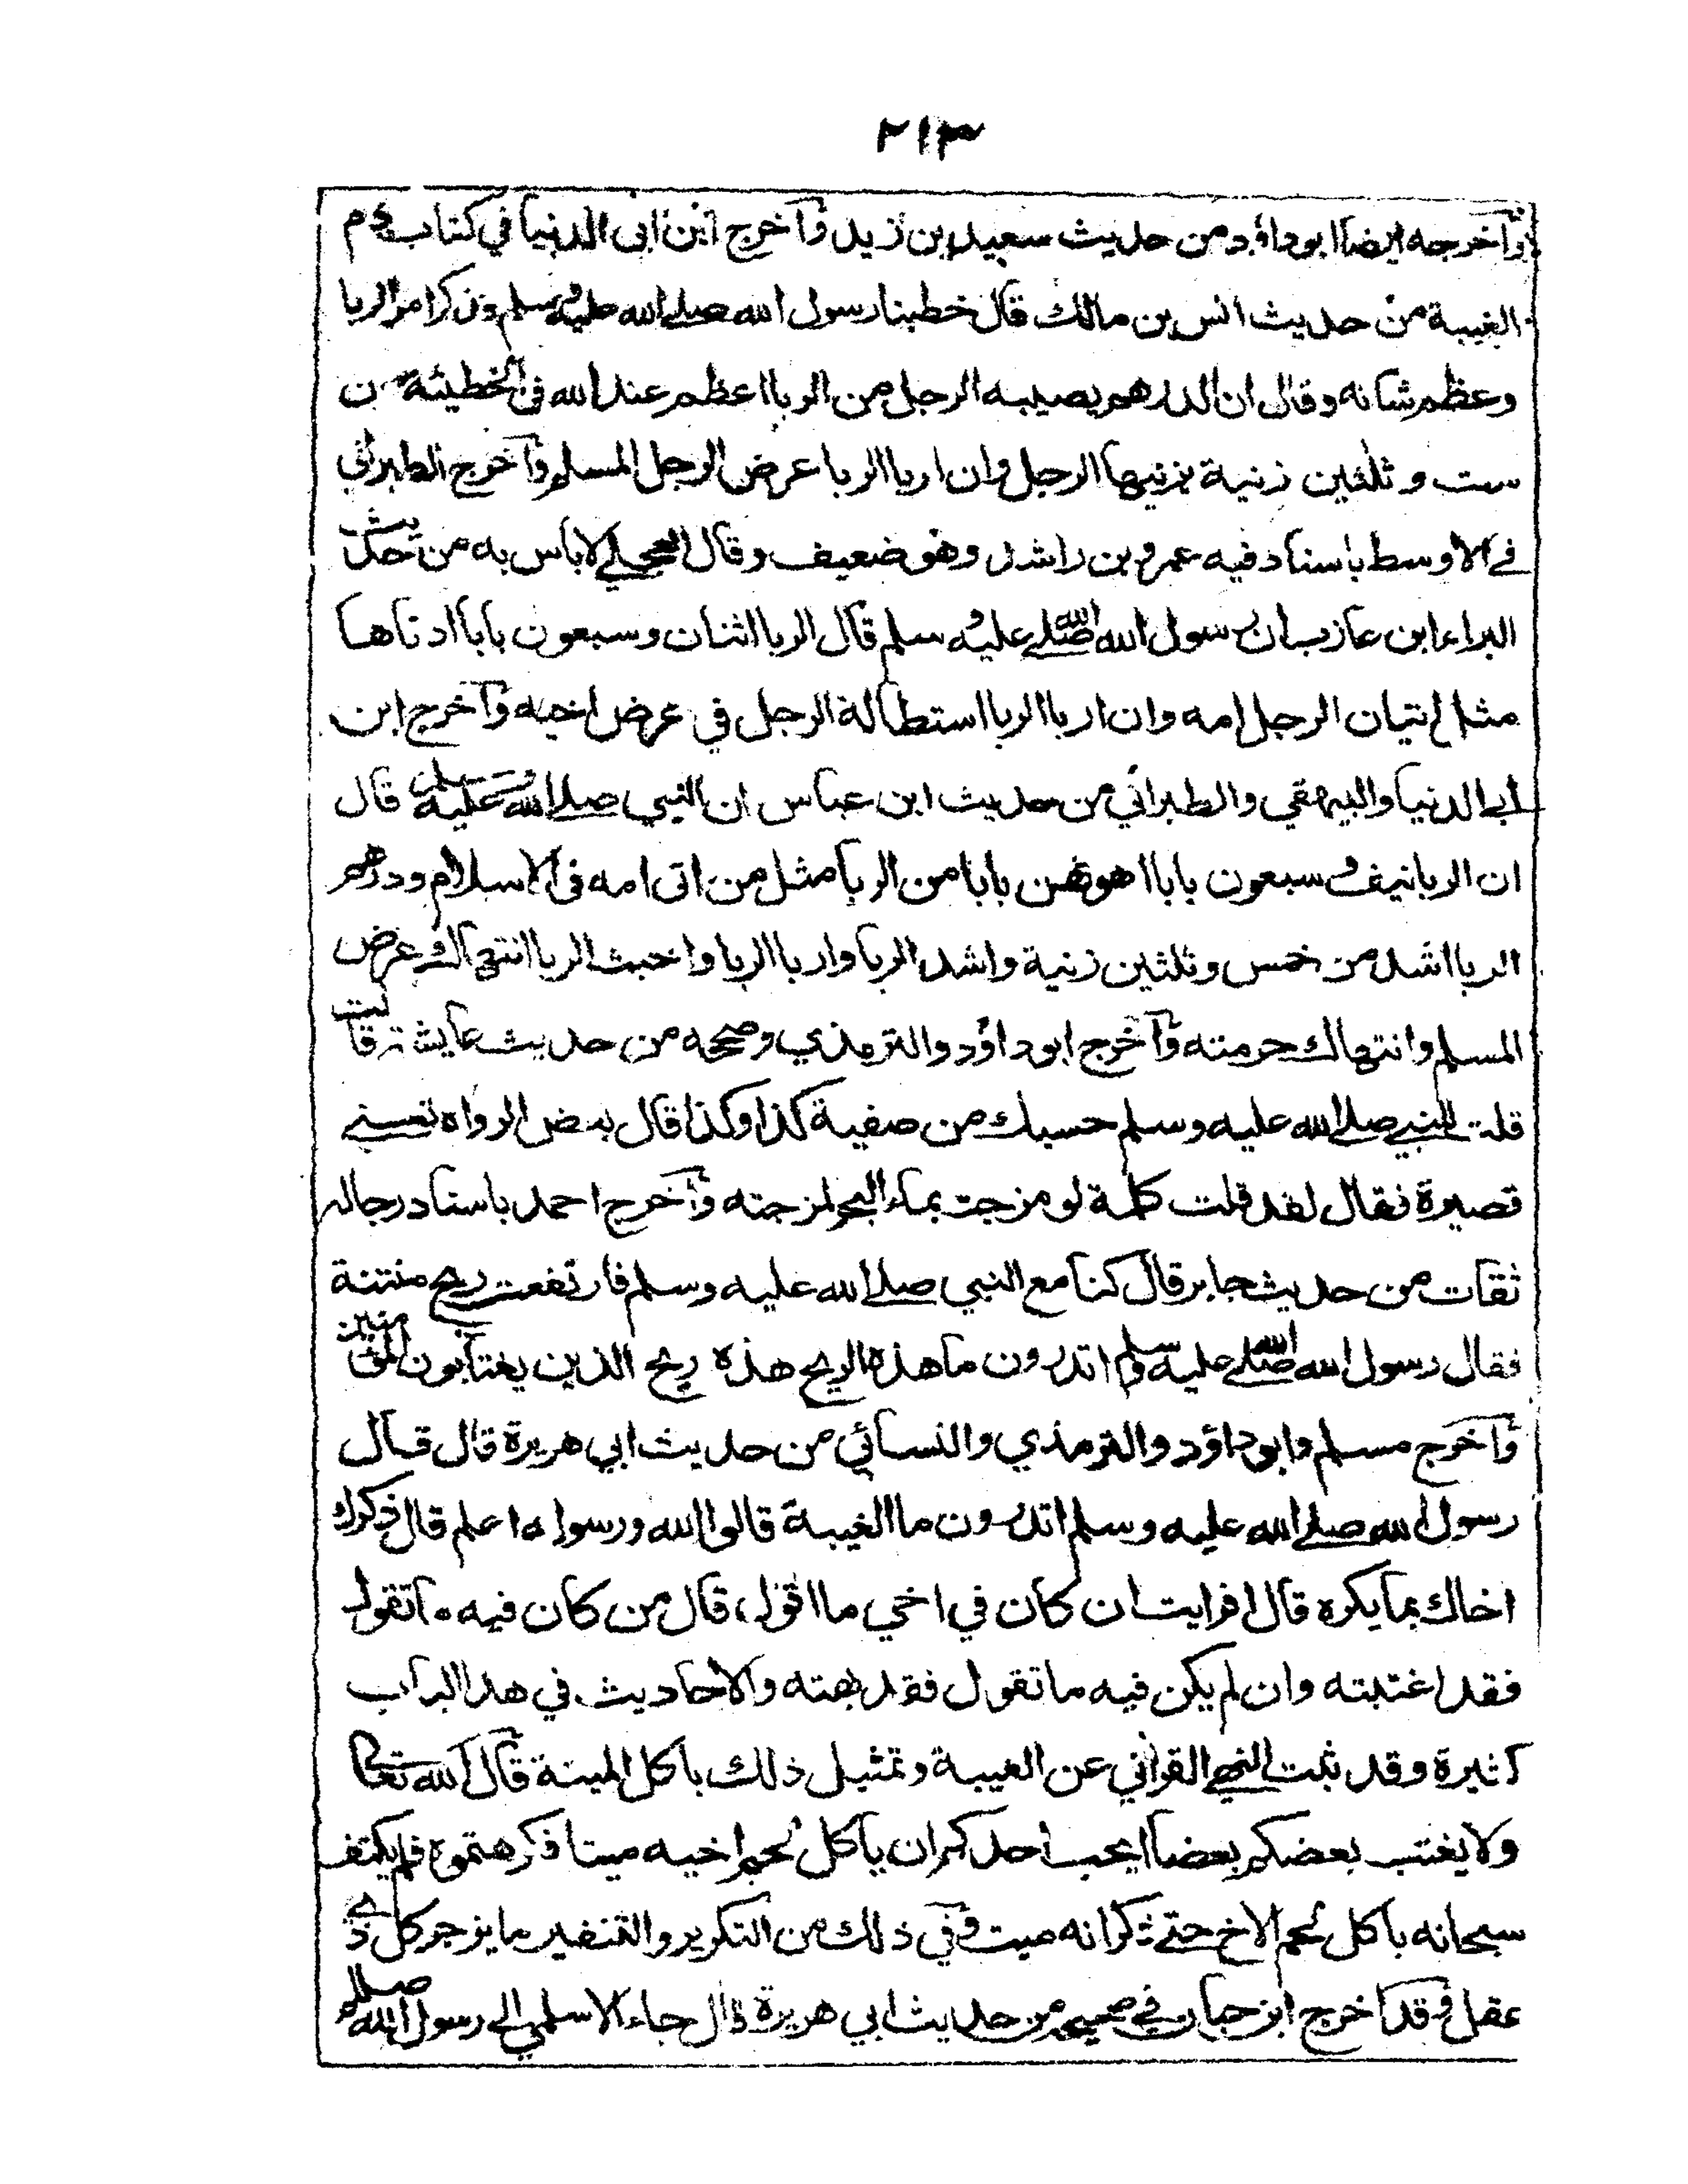 ٢١٣
واخرجه ايضا ابوداؤد من حديث سعيد بن زيد واخرج ابن ابى الدنيا في كتاب ذم
الغيبة من حديث انس بن مالك قال خطبنا رسول الله صلے الله عليه وسلم وذكر امر الربا
وعظم شانه وقال ان الدرهم يصيبه الرجل من الربا اعظم عند الله فى الخطيئة من
ست وثلثين زنية يزنيها الرجل وان اربا الربا عرض الرجل المسلم واخرج الطبرانى
فے الاوسط باسناد فيه عمرو بن راشد وهو ضعيف وقال العجلے لاباس به من حديث
البراء ابن عازب ان رسول الله صلے الله عليه وسلم قال الربا اثنان وسبعون بابا ادناها
مثل اتيان الرجل امه وان اربا الربا استطالة الرجل في عرض اخيه واخرج ابن
ابے الدنيا والبيهقي والطبراني من حديث ابن عباس ان النبي صلے الله عليه وسلم قال
ان الربا نيف وسبعون بابا اهونهن بابا من الربا مثل من اتى امه فى الاسلام ودرهم
الربا اشد من خمس وثلثين زنية واشد الربا واربا الربا واخبث الربا انتهاك عرض
المسلم وانتهاك حرمته واخرج ابوداؤد والترمذي وصححه من حديث عايشة قالت
قلت للنبے صلے الله عليه وسلم حسبك من صفية كذا وكذا قال بعض الرواه تعنے
قصيرة فقال لقد قلت كلمة لو مزجت بماء البحر لمزجته واخرج احمد باسناد رجاله
ثقات من حديث جابر قال كنا مع النبي صلے الله عليه وسلم فارتفعت ريح منتنة
فقال رسول الله صلے الله عليه وسلم اتدرون ما هذه الريح هذه ريح الذين يغتابون المؤمنين
واخرج مسلم وابوداؤد والترمذي والنسائي من حديث ابي هريرة قال قال
رسول الله صلے الله عليه وسلم اتدرون ما الغيبة قالوا الله ورسوله اعلم قال ذكرك
اخاك بما يكره قال افرايت ان كان في اخي ما اقول قال من كان فيه ما تقول
فقد اغتبته وان لم يكن فيه ما تقول فقد بهته والاحاديث في هذا الباب
كثيرة وقد ثبت النهي القرآني عن الغيبة وتمثيل ذلك باكل الميتة قال الله تعالى
ولا يغتب بعضكم بعضا ايحب احدكم ان ياكل لحم اخيه ميتا فكرهتموه فلم يكتف
سبحانه باكل لحم الاخ حتے ذكر انه ميت وفي ذلك من التكرير والتنفير ما يزجر كل ذے
عقل وقد اخرج ابن حبان في صحيحه من حديث ابي هريرة قال جاء الاسلمي الى رسول الله صلى